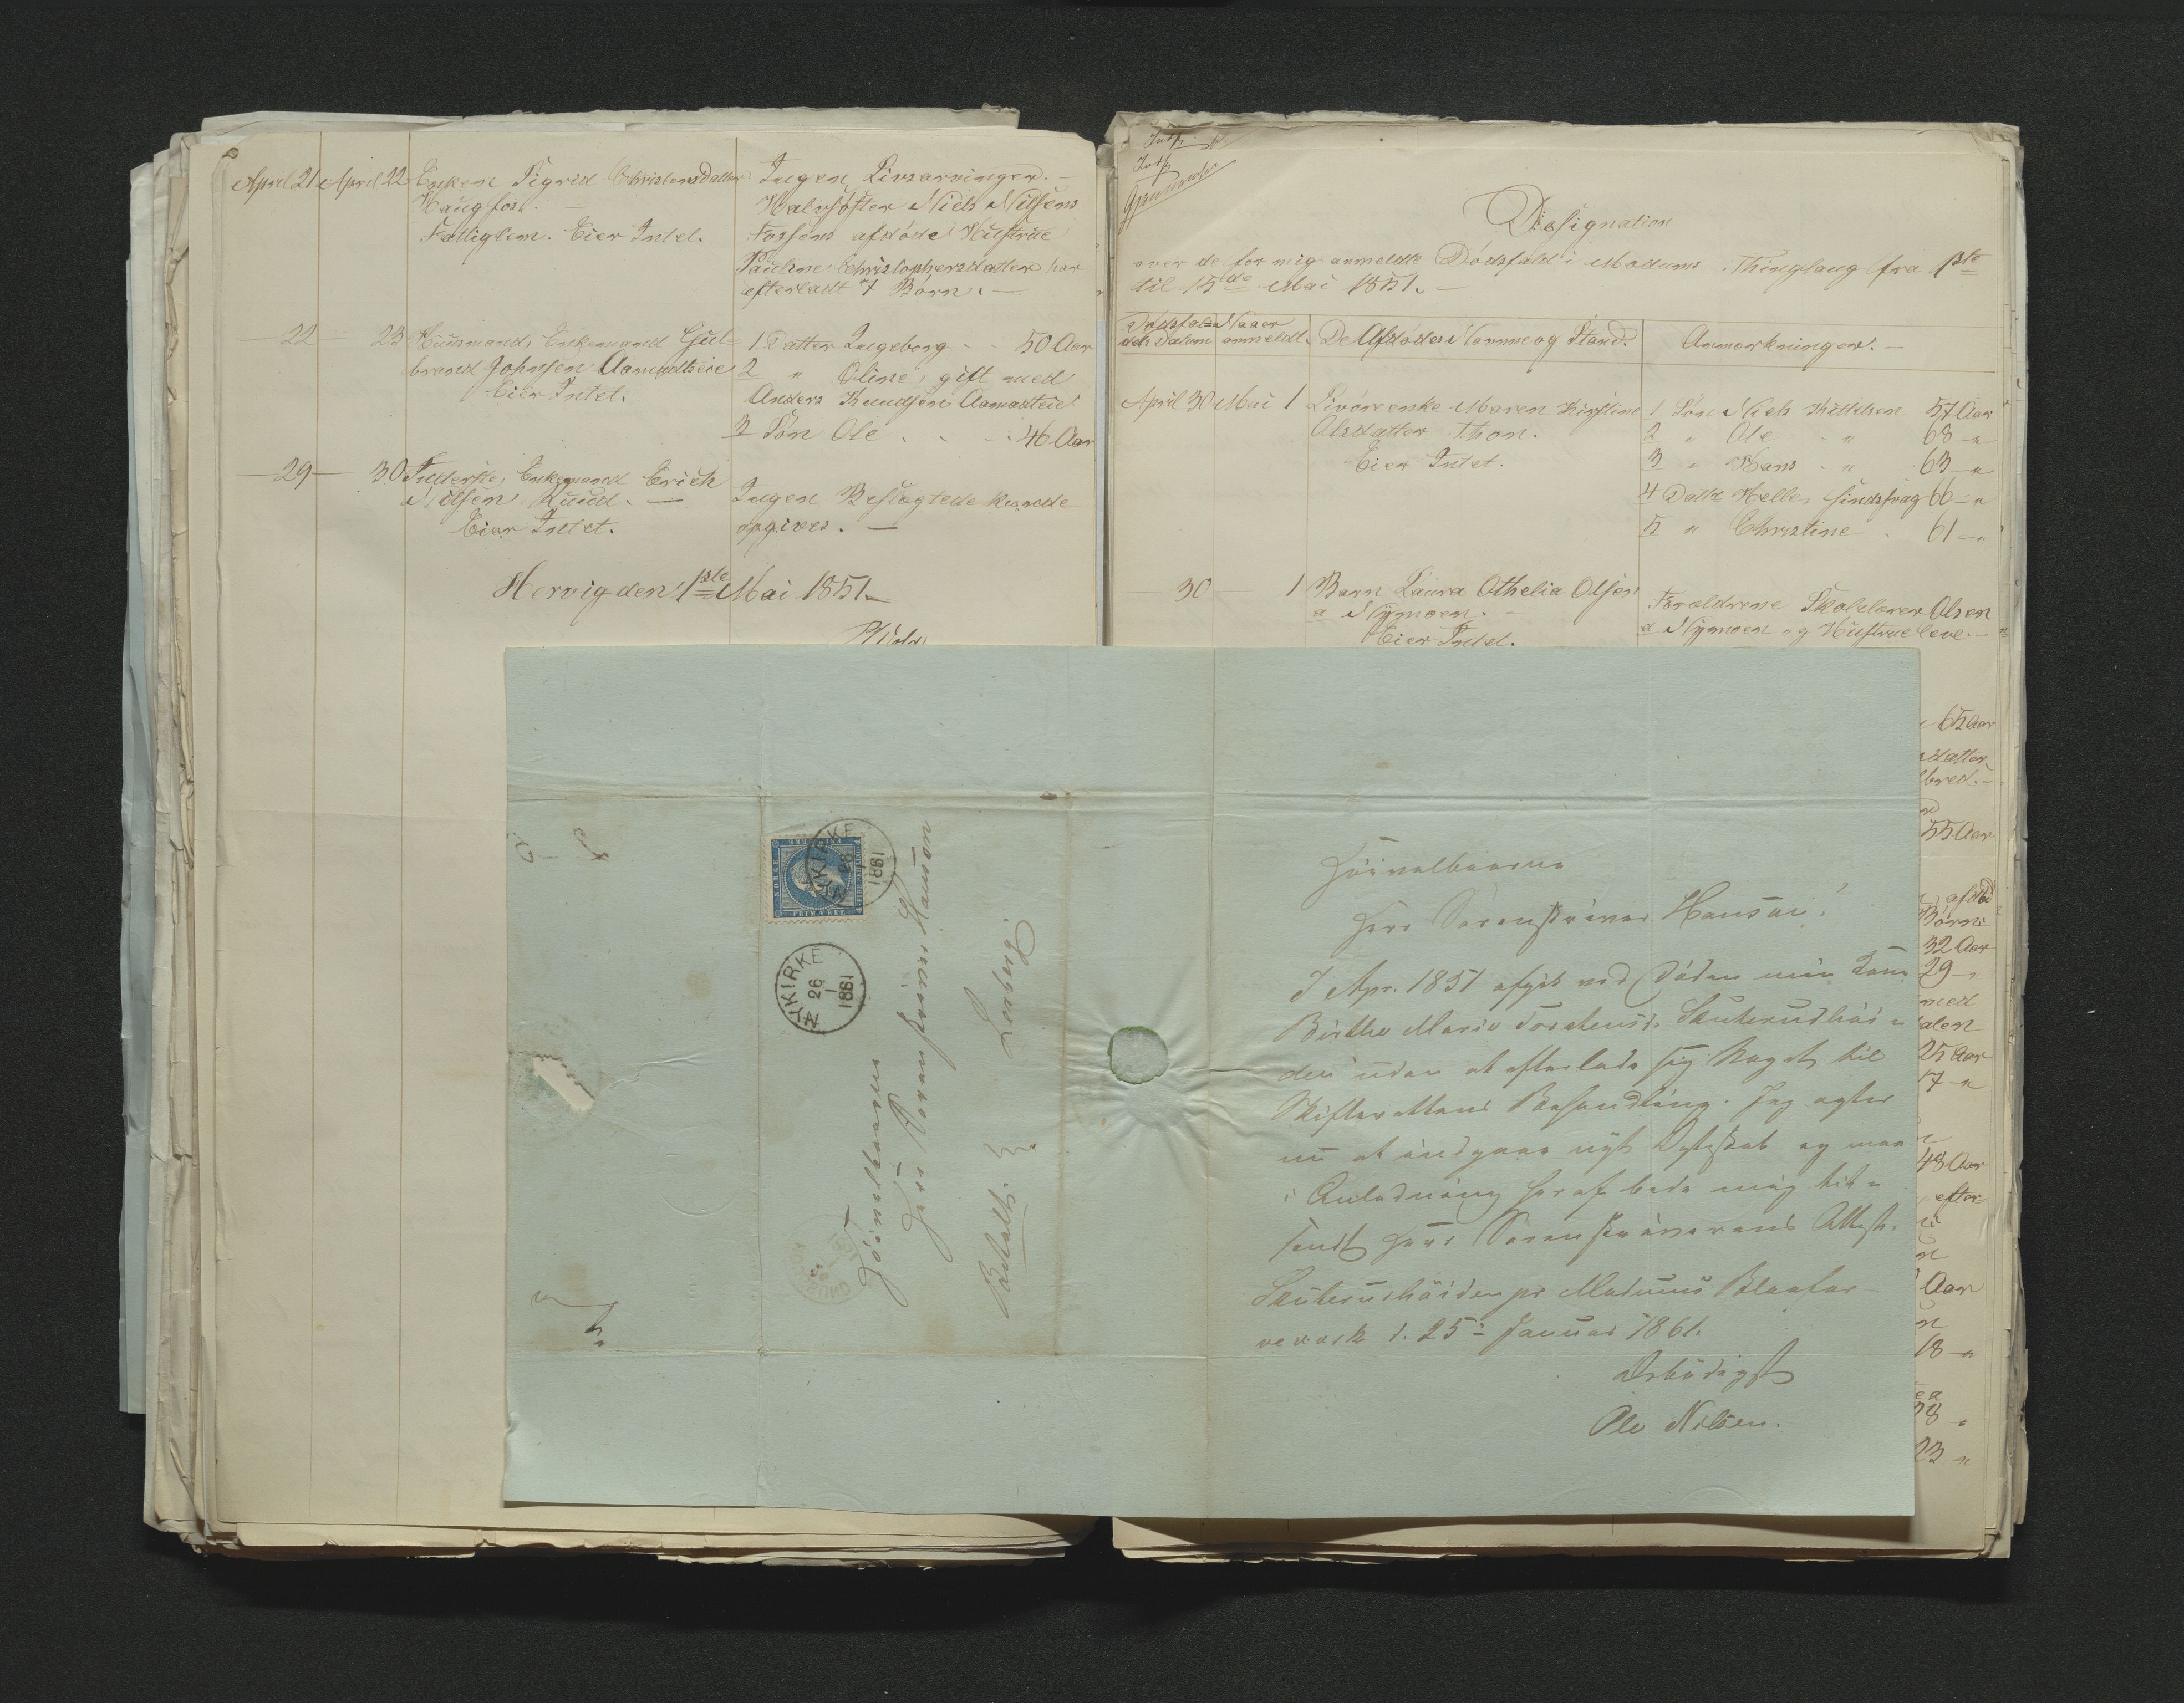 April 21 April 22 Enken Sigrid Christensdatter
Haugfos.
Fattiglem. Eier Intet.
Ingen Livsarvinger. —
Halvsøster Niels Nilsens
Fossens afdøde Hustrue
Pauline Christophersdatter har
efterladt 7 Børn. —
— 22 — 23 Huusmand, Enkemand Gul-
brand Johnsen Aamodtseie
Eier Intet.
1 Datter Ingeborg - - 50 Aar
2 " Oline, gift med
Anders Knudsen Aamodteie
3 Søn Ole . . . 46 Aar
— 29 — 30 Inderste, Enkemand Erich
Nilsen Ruud. —
Eier Intet.
Ingen Beslægtede kunde
opgives. —
Hervig den 1ste Mai 1851.
Designation
over de for mig anmeldte Dødsfald i Modums Thinglaug fra 1ste
til 15de Mai 1851. —
Dødsfal-
dets Datum
Naar
anmeldt.
De Afdødes Navne og Stand.
Anmærkninger. —
April 30 Mai 1 Livøreenske Maren Kirstine
Olsdatter Thon.
Eier Intet.
1 Søn Niels Kittelsen 57 Aar
2 " Ole " 68 - "
3 " Hans - " 63 - "
4 Datter Helle, sindssvag 66 - "
5 " Christine . 61 - "
30 — 1 Barn Laura Othelia Olsen
a Nymoen. —
Eier Intet.
Forældrene Skolelærer Olsen
a Nymoen og Hustrue leve. —
65 Aar
sdatter
55 Aar
afdød
Børn:
32 Aar
29 - "
med
dalen
25 Aar
17 - "
48 Aar
efter
Aar
18 - "
28 "
23 - "
NORGE
FRIMÆRKE
NYKIRKE
26
1
1861
NYKIRKE
26
1
1861
Høivelbaarne
Herr Sorenskriver Hansson
Betalt. Lerberg.
Høivelbaarne
Herr Sorenskriver Hansen!
I Apr. 1851 afgik ved Døden min Kone
Birthe Marie Torstensd. Skuterudhøi-
den uden at efterlade sig Noget til
Skifterettens Behandling. Jeg agter
nu at indgaae nyt Ægteskab og maa
i Anledning heraf bede mig til-
sendt Herr Sorenskriverens Attest.
Skuterudhøiden pr Modums Blaafar-
veværk d. 25de Januar 1861.
Ærbødigst
Ole Nilsen.